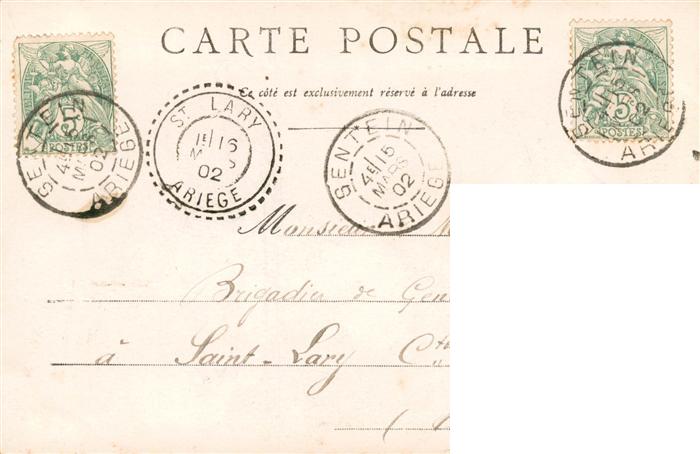 CARTE POSTALE
Ce côté est exclusivement réservé à l'adresse
5
POSTES
SENTEIN
15
MARS
02
ARIEGE
ST LARY
16
02
ARIEGE
SENTEIN
15
MARS
02
ARIEGE
SENTEIN
02
5
POSTES
Monsieur
Brigadier de Gen
à Saint-Lary Cton
(